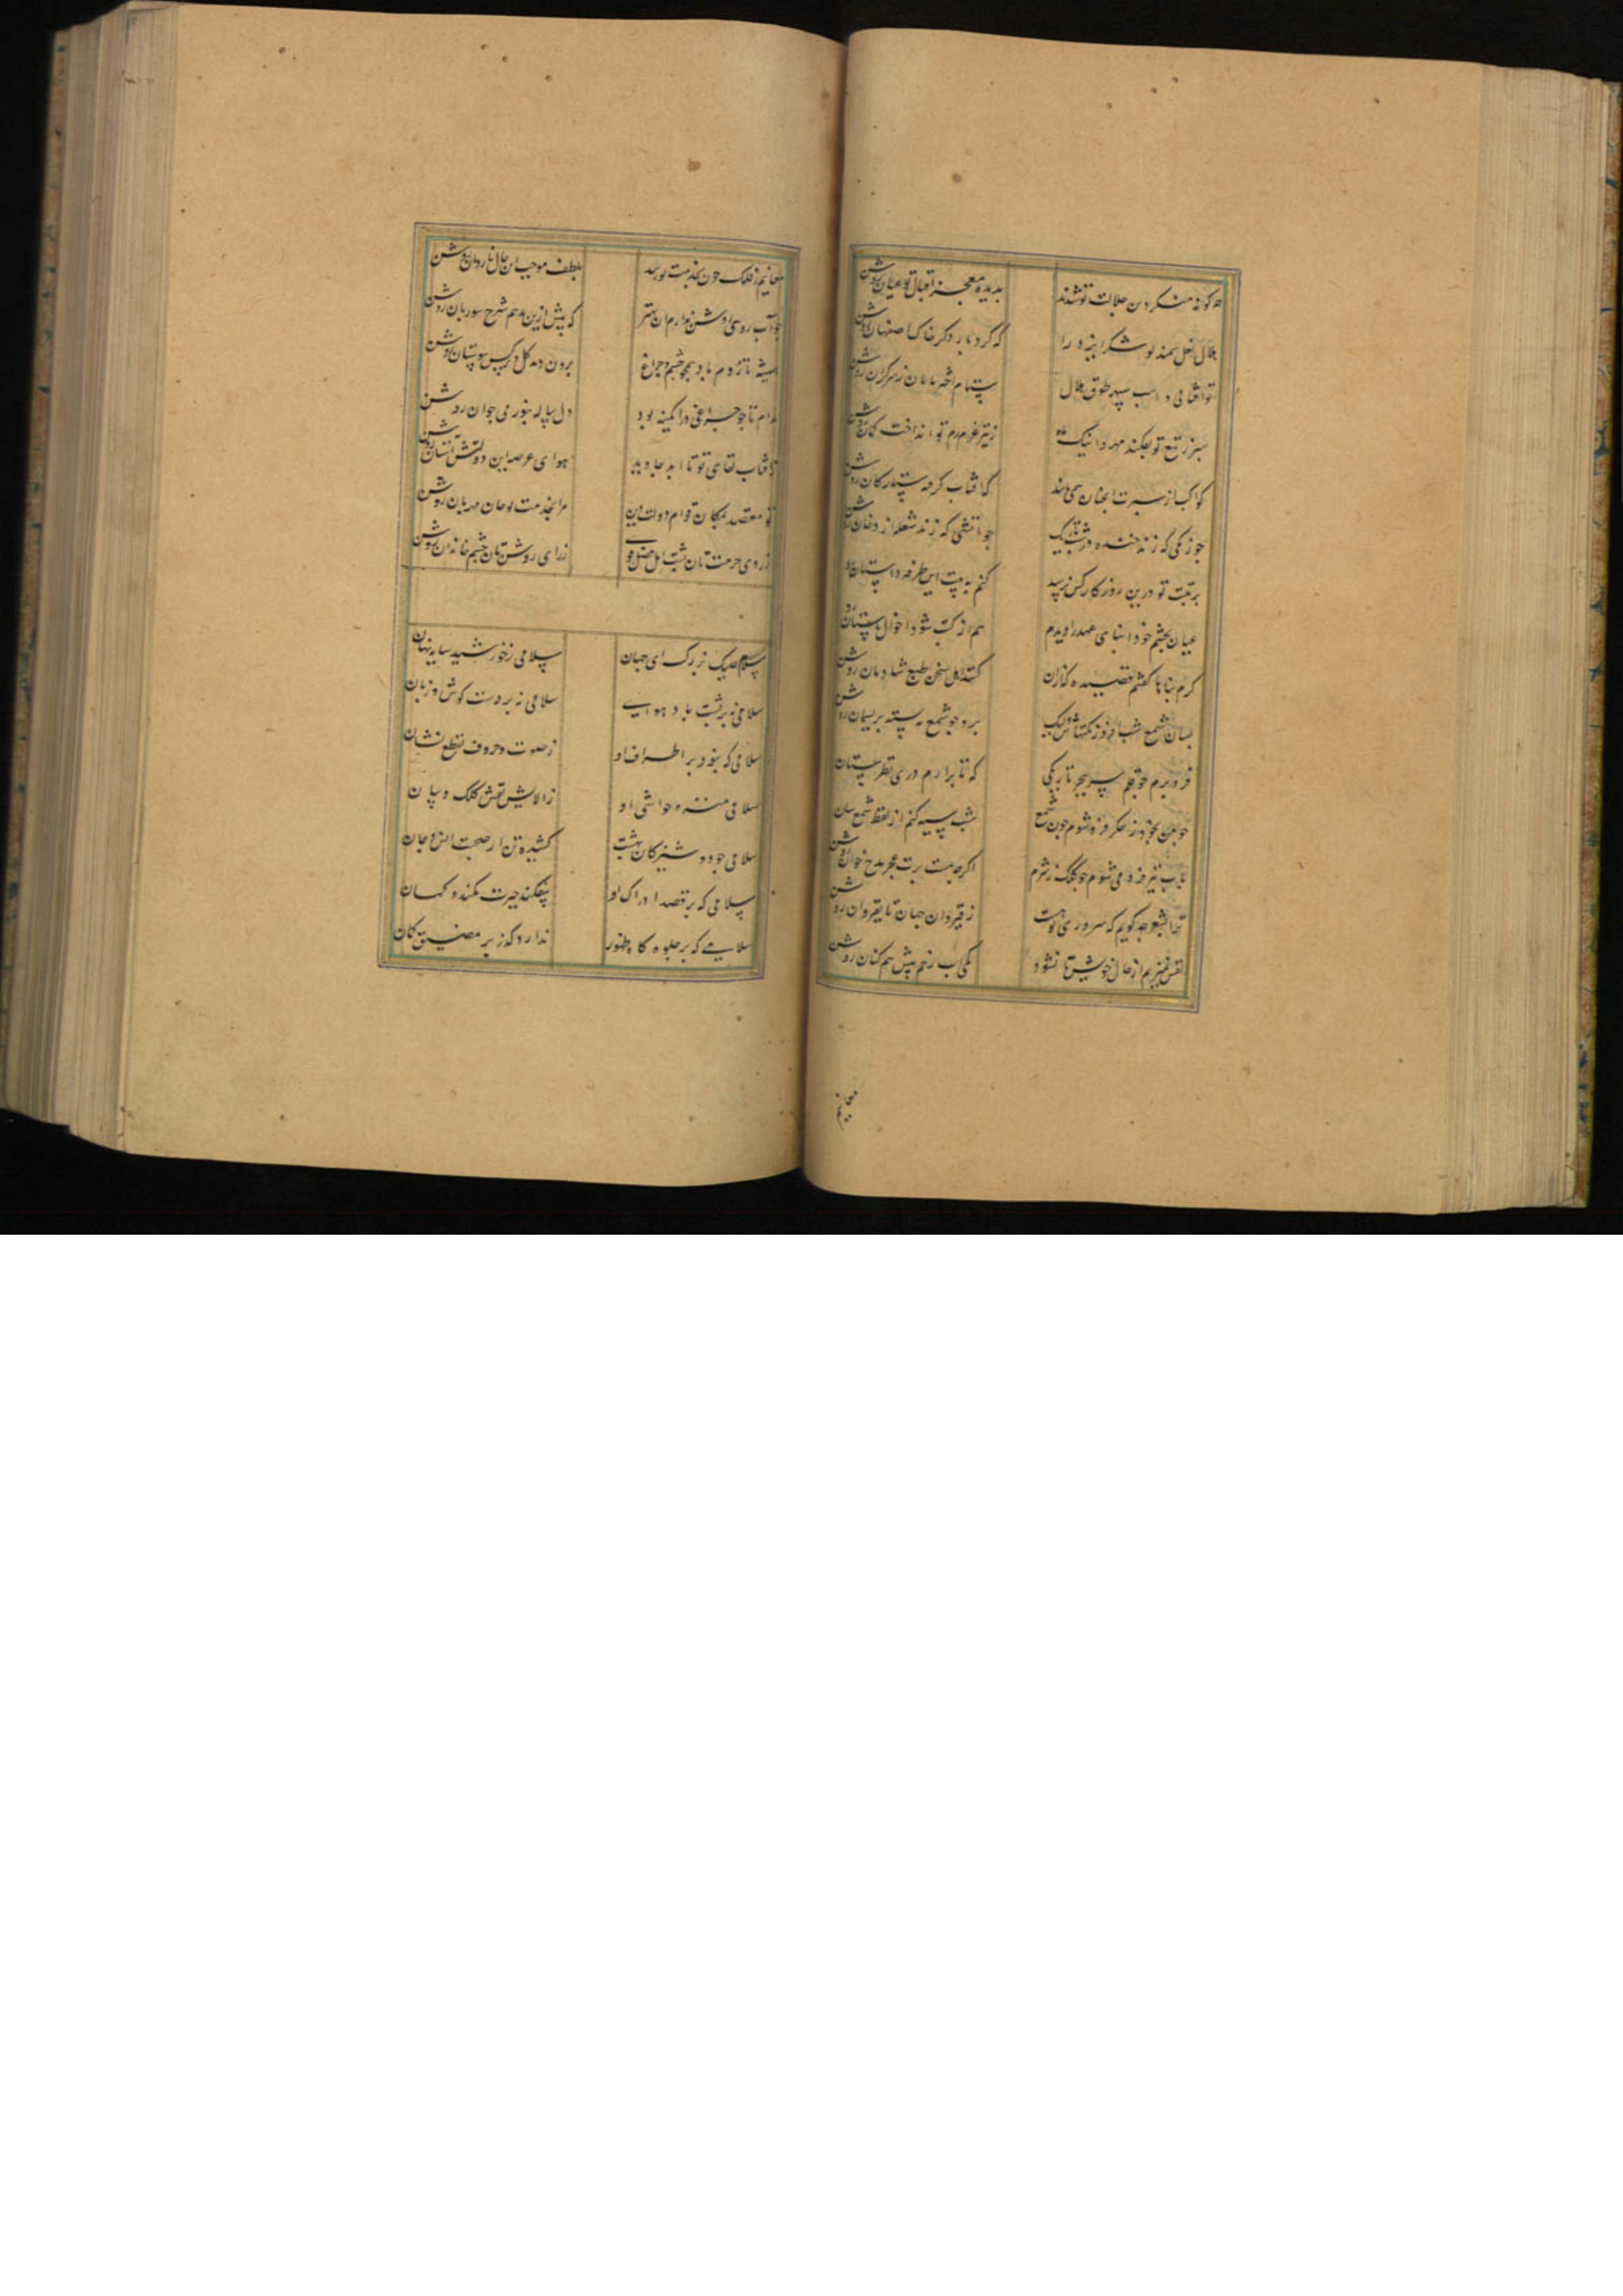 چگونه منکر دین جلالت تو شدند بدیده معجز اقبال تو عیان روشن
هلال نعل سمند تو شکر ایزد را که کرد بار دکر خاک اصفهان روشن
تو آفتابی و اسب سپهر طوق هلال ستام اختر تابان زسر کران روشن
سپر ز تیغ تو بفکند مهر و اینک ماه ز تیر عزم تو انداخت کمان روشن
کواکب از سیرت انچنان همی تابند کافتاب کرفه ستارکان روشن
چو زنکی که زند خنده در شب تاریک چو اتشی که زند شعله از دخان روشن
برتبت تو درین روزکار کس نرسید کنم به بیت این طرفه داستان روشن
عیان بچشم خود ابنای عهد را دیدم هم از کتب شود احوال باستان روشن
کرم بنا ها کفتم قصیده که ازان کشت اهل سخن طبع شادمان روشن
بسان شمع شب افروز نکتهاش ولیک برو چو شمع به بسته بریسمان روشن
فرو برم چو قلم سر ببحر تاریکی که تا برارم دری قطره ستان
چو من بخود ز تفکر فرو شوم چون شمع شب سیه کنم از لفظ شمع سان روشن
باب تیره فرو می شوم چو کلک ز شرم اکر چه هست برت عجز مدح خوان روشن
ترا بشعر چه کویم که سروری تو هست ز قیروان جهان تا بقیروان روشن
نفس نمیزنم از حال خویش تا نشود یکی اب رخم پیش همکنان روشن
معانیم
معانیم ز فلک چون بخدمت تو رسد بلطف موجب این حال بازدان روشن
جو آب روی روشن ندارم ان بهتر که پیش ازین ندهم شرح سوز بان روشن
همیشه تا زدم باد همچو چشم و چراغ برون دمد کل و نرکس ببوستان روشن
مدام تا چو چراغی در ابکینه بود دل پیاله بنور می جوان روشن
ز آفتاب بقای تو تا ابد جاوید هوای عرصه این دولت آشیان روشن
تو معتصد بمکان قوام دولت و این مرا بخدمت تو جان مهربان روشن
ز روی حرمت تان پشت اهل فضل قوی ز رای روشنتان چشم خاندان روشن
سلام علیک ای بزرک جهان سلامی ز خورشید سایه نهان
سلامی نه بر پشت باد هوایی سلامی نه بر دست کوش و زبان
سلامی که نبود بر اطراف او ز صوت و حروف تقطع نشان
سلامی منزه حواشی او ز آلایش نقش کلک و بیان
سلامی چو دوشیزکان بهشت کشیده تن از صحبت انس و جان
سلامی که بر قصد ادراک او بیفکند حیرت کمند و کمان
سلامی که بر جلوه کاه ظهور ندارد کذر بر مضیق مکان